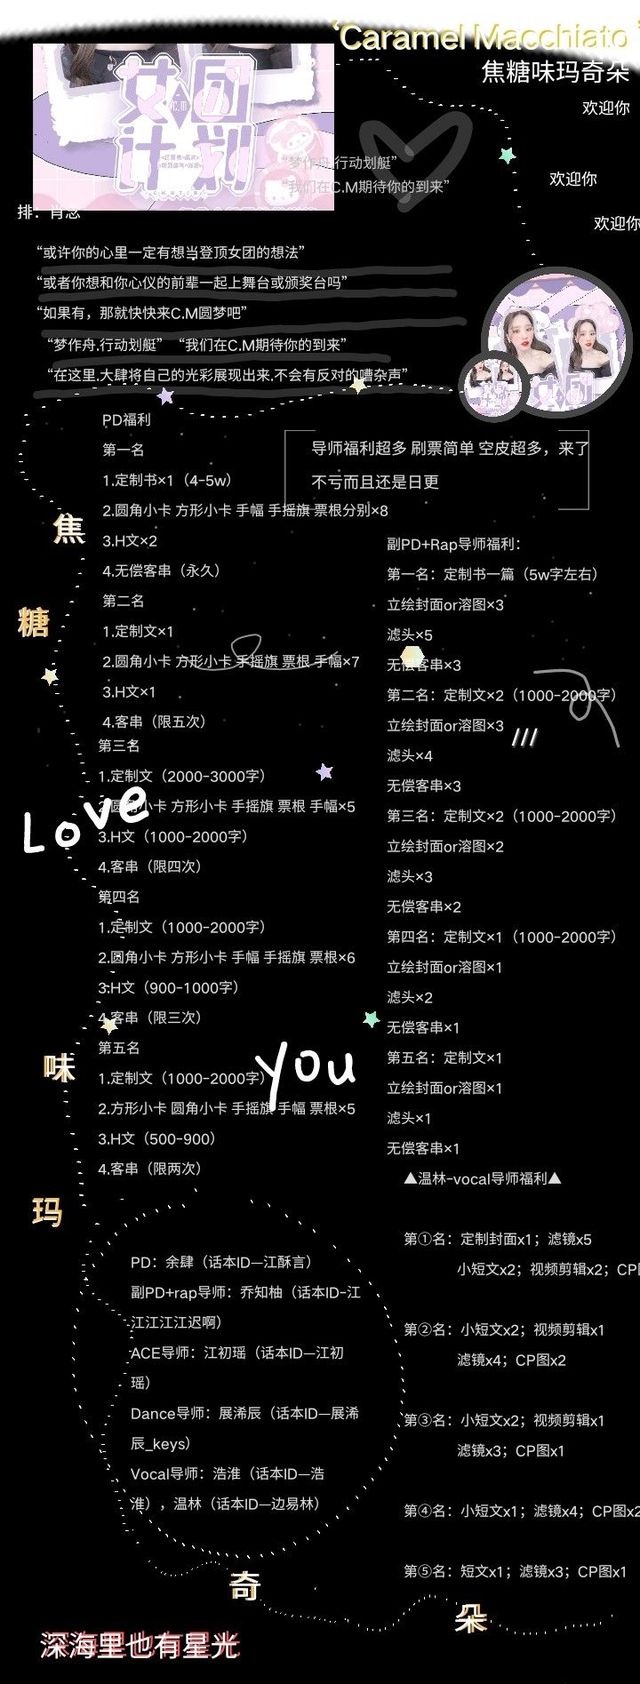 'Caramel Macchiato'
焦糖味玛奇朵
欢迎你
欢迎你
欢迎你
女团
计划
C.M
排：肖念
“梦作舟.行动划艇”
“我们在C.M期待你的到来”
“或许你的心里一定有想当登顶女团的想法”
“或者你想和你心仪的前辈一起上舞台或颁奖台吗”
“如果有，那就快快来C.M圆梦吧”
“梦作舟.行动划艇” “我们在C.M期待你的到来”
“在这里.大肆将自己的光彩展现出来.不会有反对的嘈杂声”
女团
导师福利超多 刷票简单 空皮超多，来了
不亏而且还是日更
PD福利
第一名
1.定制书×1（4-5w）
2.圆角小卡 方形小卡 手幅 手摇旗 票根分别×8
3.H文×2
4.无偿客串（永久）
第二名
1.定制文×1
2.圆角小卡 方形小卡 手摇旗 票根 手幅×7
3.H文×1
4.客串（限五次）
第三名
1.定制文（2000-3000字）
2.圆角小卡 方形小卡 手摇旗 票根 手幅×5
3.H文（1000-2000字）
4.客串（限四次）
第四名
1.定制文（1000-2000字）
2.圆角小卡 方形小卡 手幅 手摇旗 票根×6
3.H文（900-1000字）
4.客串（限三次）
第五名
1.定制文（1000-2000字）
2.方形小卡 圆角小卡 手摇旗 手幅 票根×5
3.H文（500-900）
4.客串（限两次）
副PD+Rap导师福利：
第一名：定制书一篇（5w字左右）
立绘封面or溶图×3
滤头×5
无偿客串×3
第二名：定制文×2（1000-2000字）
立绘封面or溶图×3
滤头×4
无偿客串×3
第三名：定制文×2（1000-2000字）
立绘封面or溶图×2
滤头×3
无偿客串×2
第四名：定制文×1（1000-2000字）
立绘封面or溶图×1
滤头×2
无偿客串×1
第五名：定制文×1
立绘封面or溶图×1
滤头×1
无偿客串×1
▲温林-vocal导师福利▲
第①名：定制封面x1；滤镜x5
小短文x2；视频剪辑x2；CP
第②名：小短文x2；视频剪辑x1
滤镜x4；CP图x2
第③名：小短文x2；视频剪辑x1
滤镜x3；CP图x1
第④名：小短文x1；滤镜x4；CP图x2
第⑤名：短文x1；滤镜x3；CP图x1
PD：余肆（话本ID—江酥言）
副PD+rap导师：乔知柚（话本ID-江
江江江江迟啊）
ACE导师：江初瑶（话本ID—江初
瑶）
Dance导师：展浠辰（话本ID—展浠
辰_keys）
Vocal导师：浩淮（话本ID—浩
淮），温林（话本ID—边易林）
Love
you
焦
糖
味
玛
奇
朵
深海里也有星光